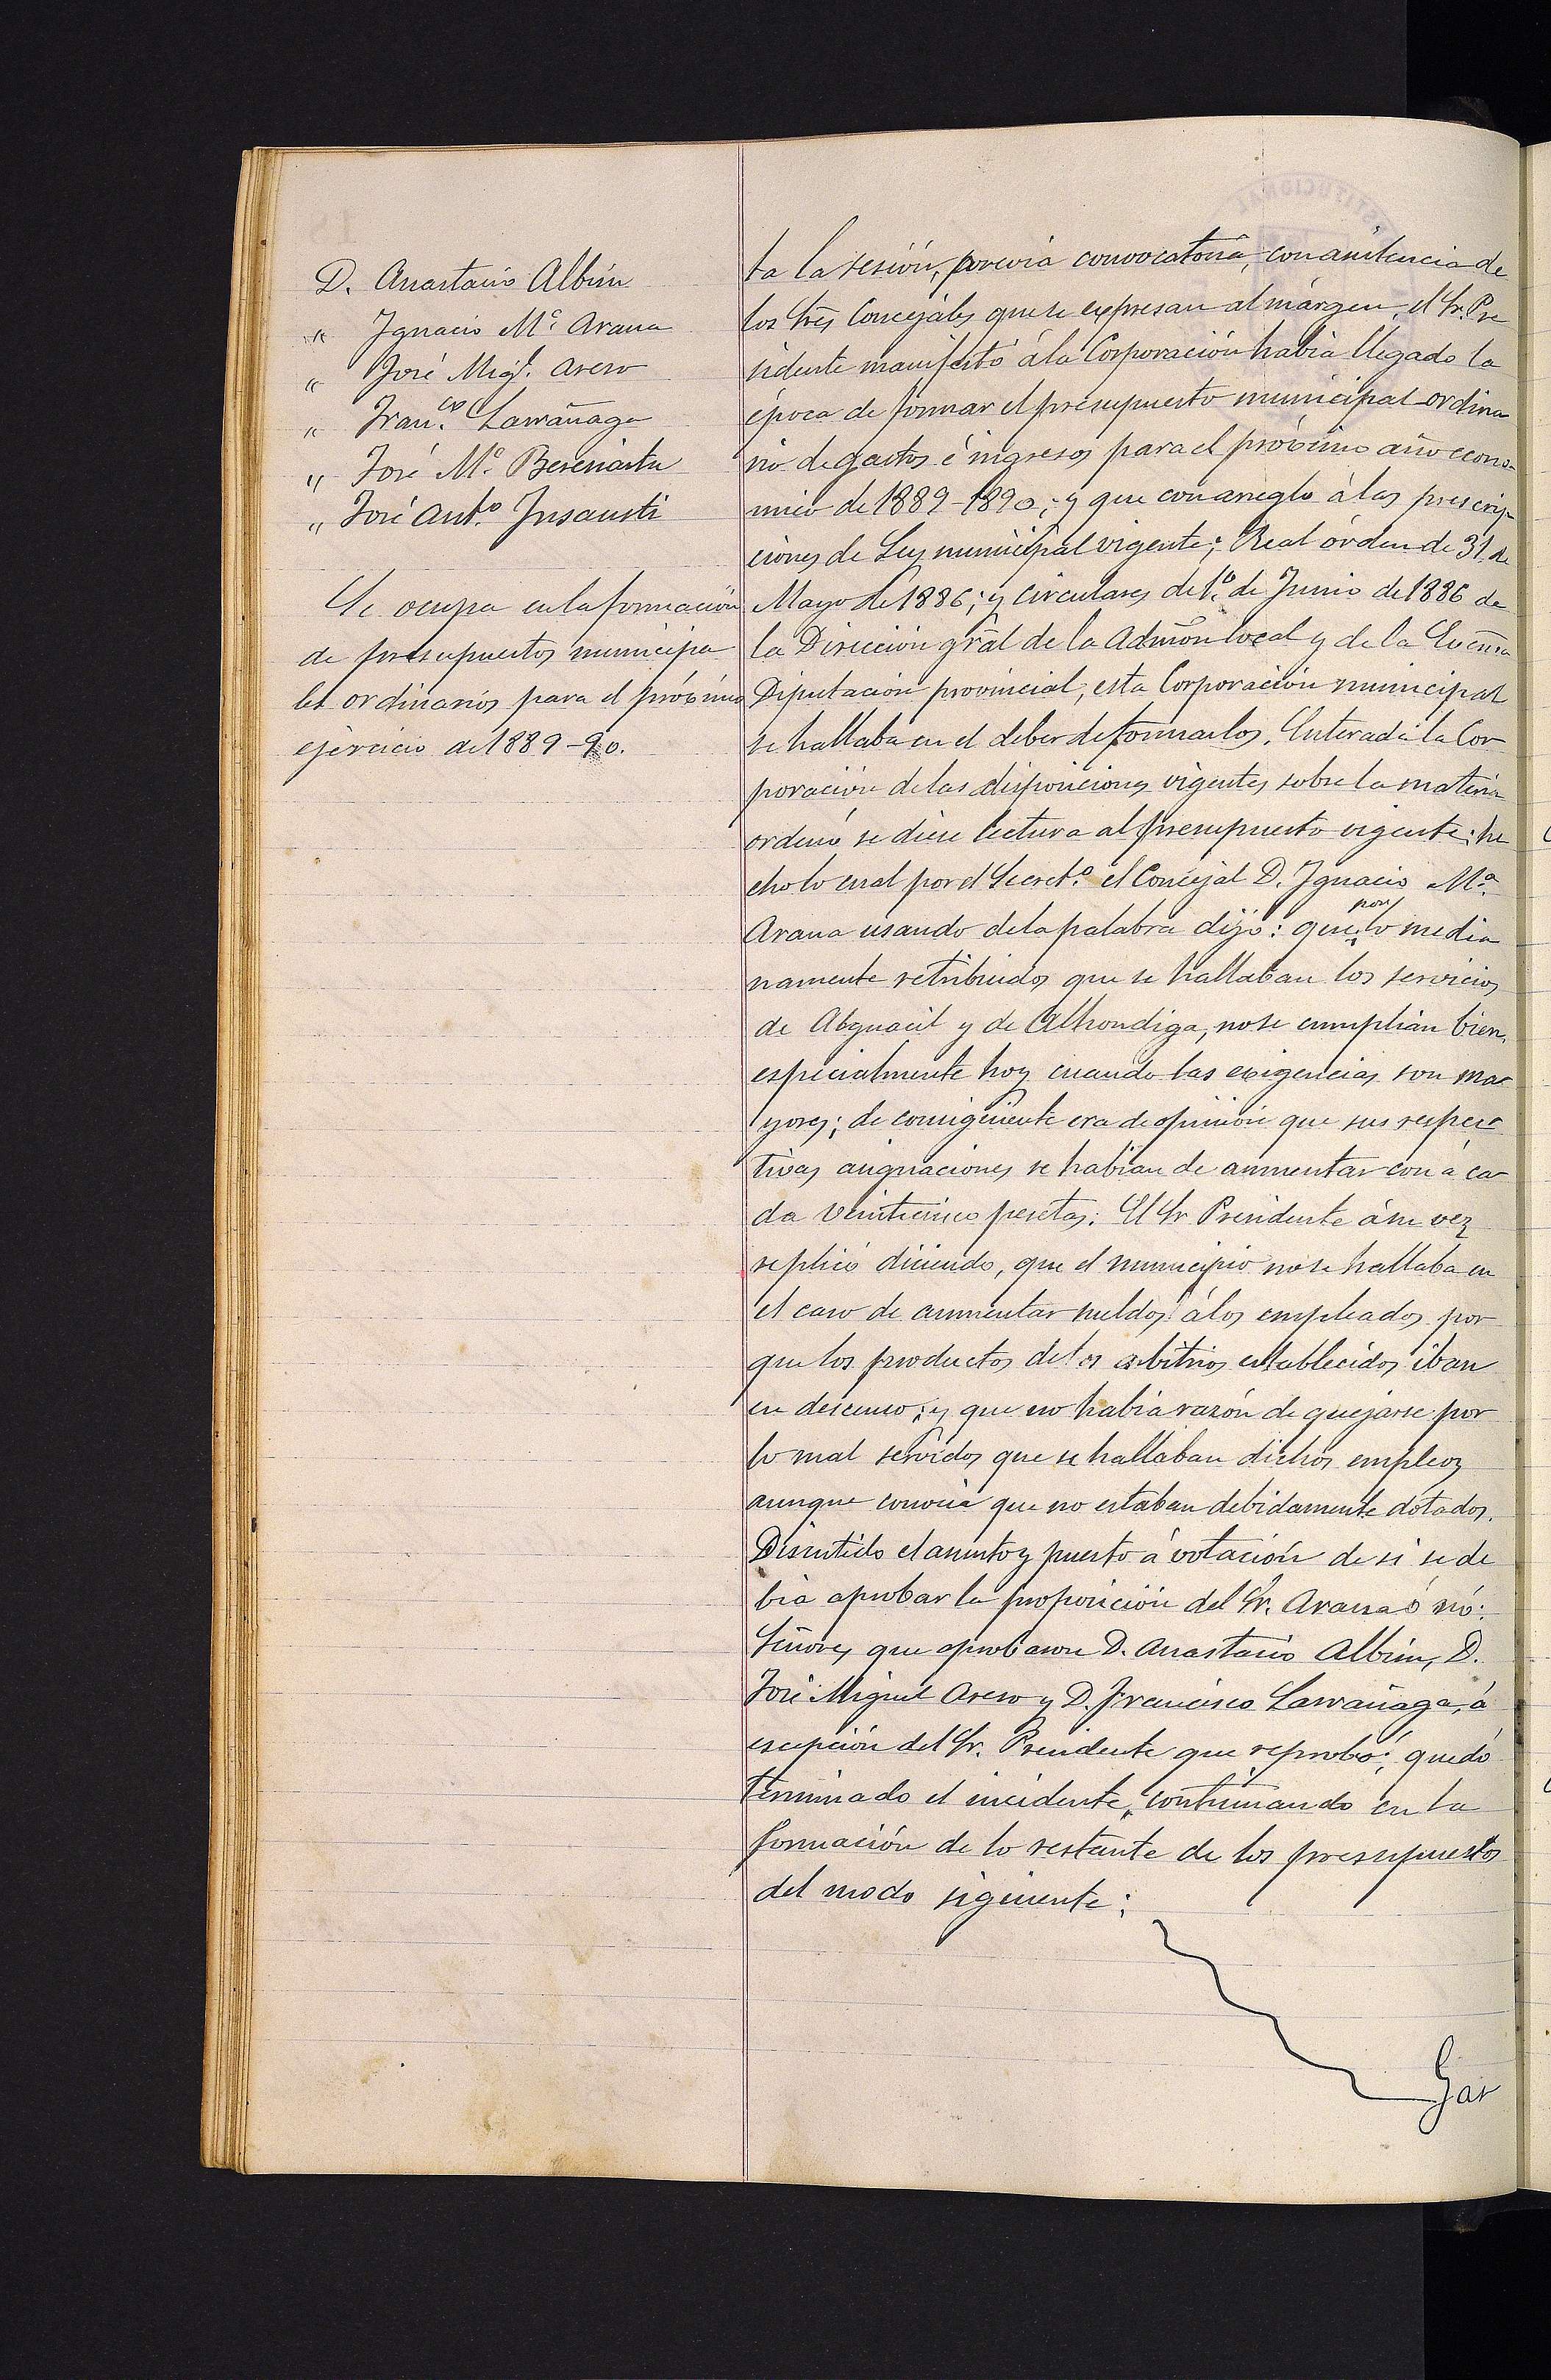 D. Anastasio Albisu
" Ygnacio Mª. Arana
" José Migl. Asero
" Franco. Larrañaga
" José Mª. Beresiartu
" José Anto. Insausti
Se ocupa en la formación
de presupuestos municipa
les ordinarios para el próximo
ejercicio de 1889-90.
ta la sesión, previa convocatoria, con asistencia de
los Sres Concejales que se expresan al márgen, el Sr. Pre
sidente manifestó á la Corporación había llegado la
época de formar el presupuesto municipal ordina
rio de gastos é ingresos para el próximo año econo-
mico de 1889-1890; y que con arreglo á las prescrip-
ciones de Ley municipal vigente; Real órden de 31 de
Mayo de 1886; y circulares de 1º. de Junio de 1886 de
la Dirección gral de la Admón local y de la Excma
Diputación provincial, esta Corporación municipal
se hallaba en el deber de formarlos. Enterada la Cor
poración de las disposiciones vigentes sobre la materia
ordenó se diese lectura al presupuesto vigente: he
cho lo cual por el Secreto. el Concejal D. Ygnacio Mª.
Arana usando de la palabra dijo: que por lo media
namente retribuidos que se hallaban los servicios
de Alguacil y de Alhondiga, no se cumplían bien,
especialmente hoy cuando las exigencias son ma-
yores; de consiguiente era de opinión que sus respec-
tivas asignaciones se habían de aumentar con á ca
da veinticinco pesetas: El Sr Presidente á su vez
replicó diciendo, que el municipio no se hallaba en
el caso de aumentar sueldos á los empleados por
que los productos de los arbitrios establecidos iban
en descenso; y que no había razón de quejarse por
lo mal servidos que se hallaban dichos empleos
aunque conocía que no estaban debidamente dotados.
Discutido el asunto y puesto á votación de si se de
bia aprobar la proposición del Sr. Arana ó nó:
Señores que aprobaron D. Anastasio Albisu, D.
José Miguel Asero y D. Francisco Larrañaga, á
escepción del Sr. Presidente que reprobó; quedó
terminado el incidente, continuando en la
formación de lo restante de los presupuestos
del modo siguiente:
Gas